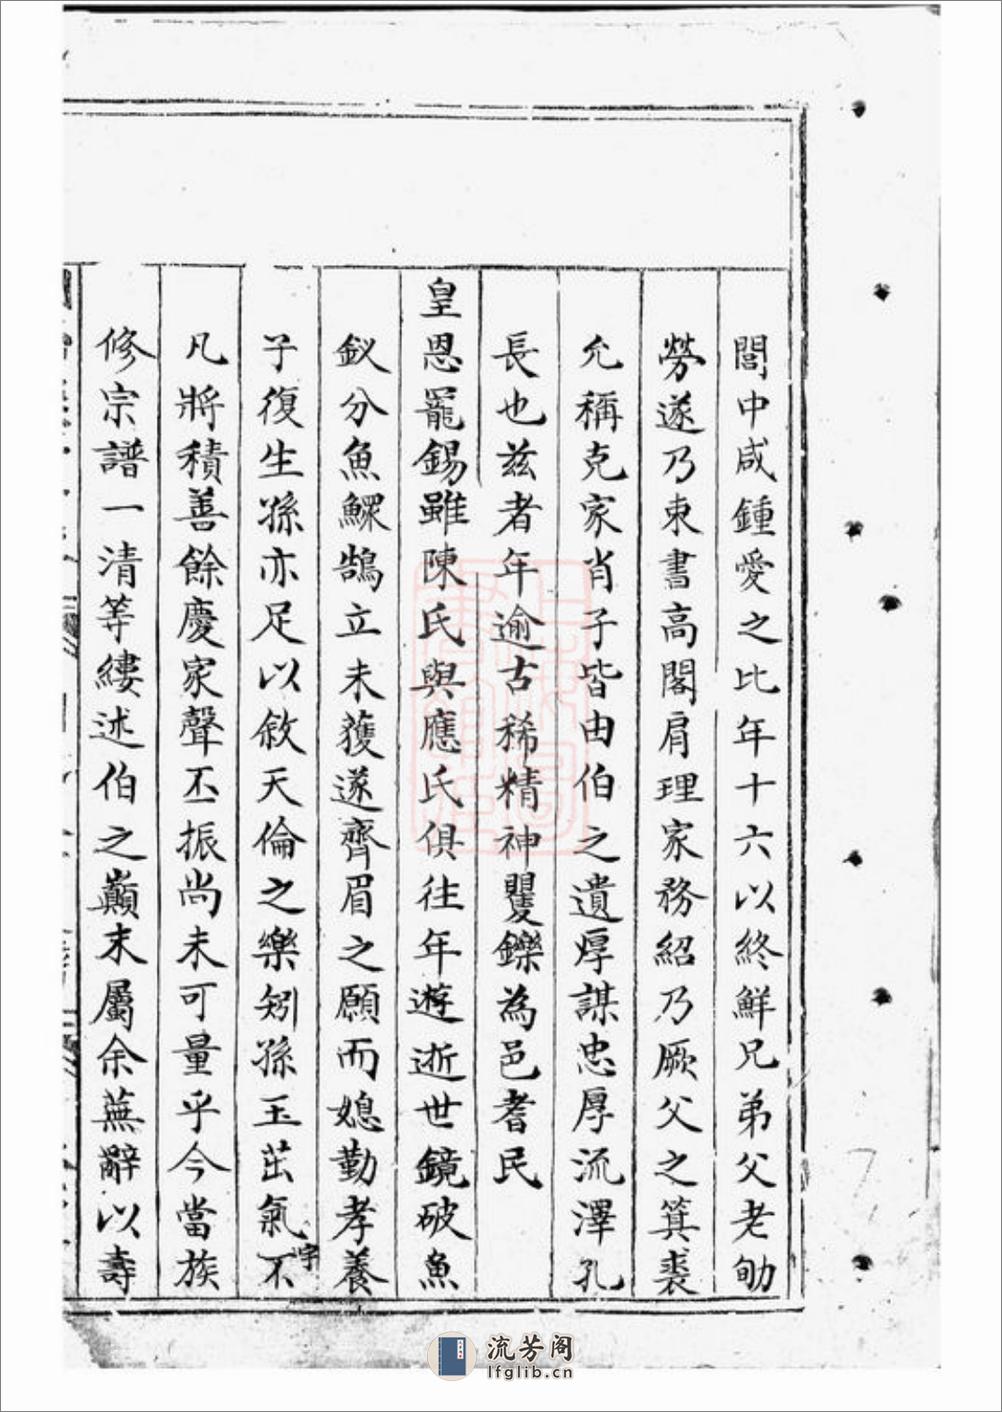 閭中咸鍾愛之比年十六以終鮮兄弟父老劬
勞遂乃束書高閣肩理家務紹乃厥父之箕裘
允稱克家肖子皆由伯之遺厚謀忠厚流澤孔
長也茲者年逾古稀精神矍鑠為邑耆民
皇恩寵錫雖陳氏與應氏俱往年遊逝世鏡破魚
釵分魚鰥鵠立未獲遂齊眉之願而媳勤孝養
子復生孫亦足以敘天倫之樂矧孫玉茁氣宇不
凡將積善餘慶家聲丕振尚未可量乎今當族
修宗譜一清等縷述伯之巔末屬余蕪辭以壽
流芳阁
lfglib.cn